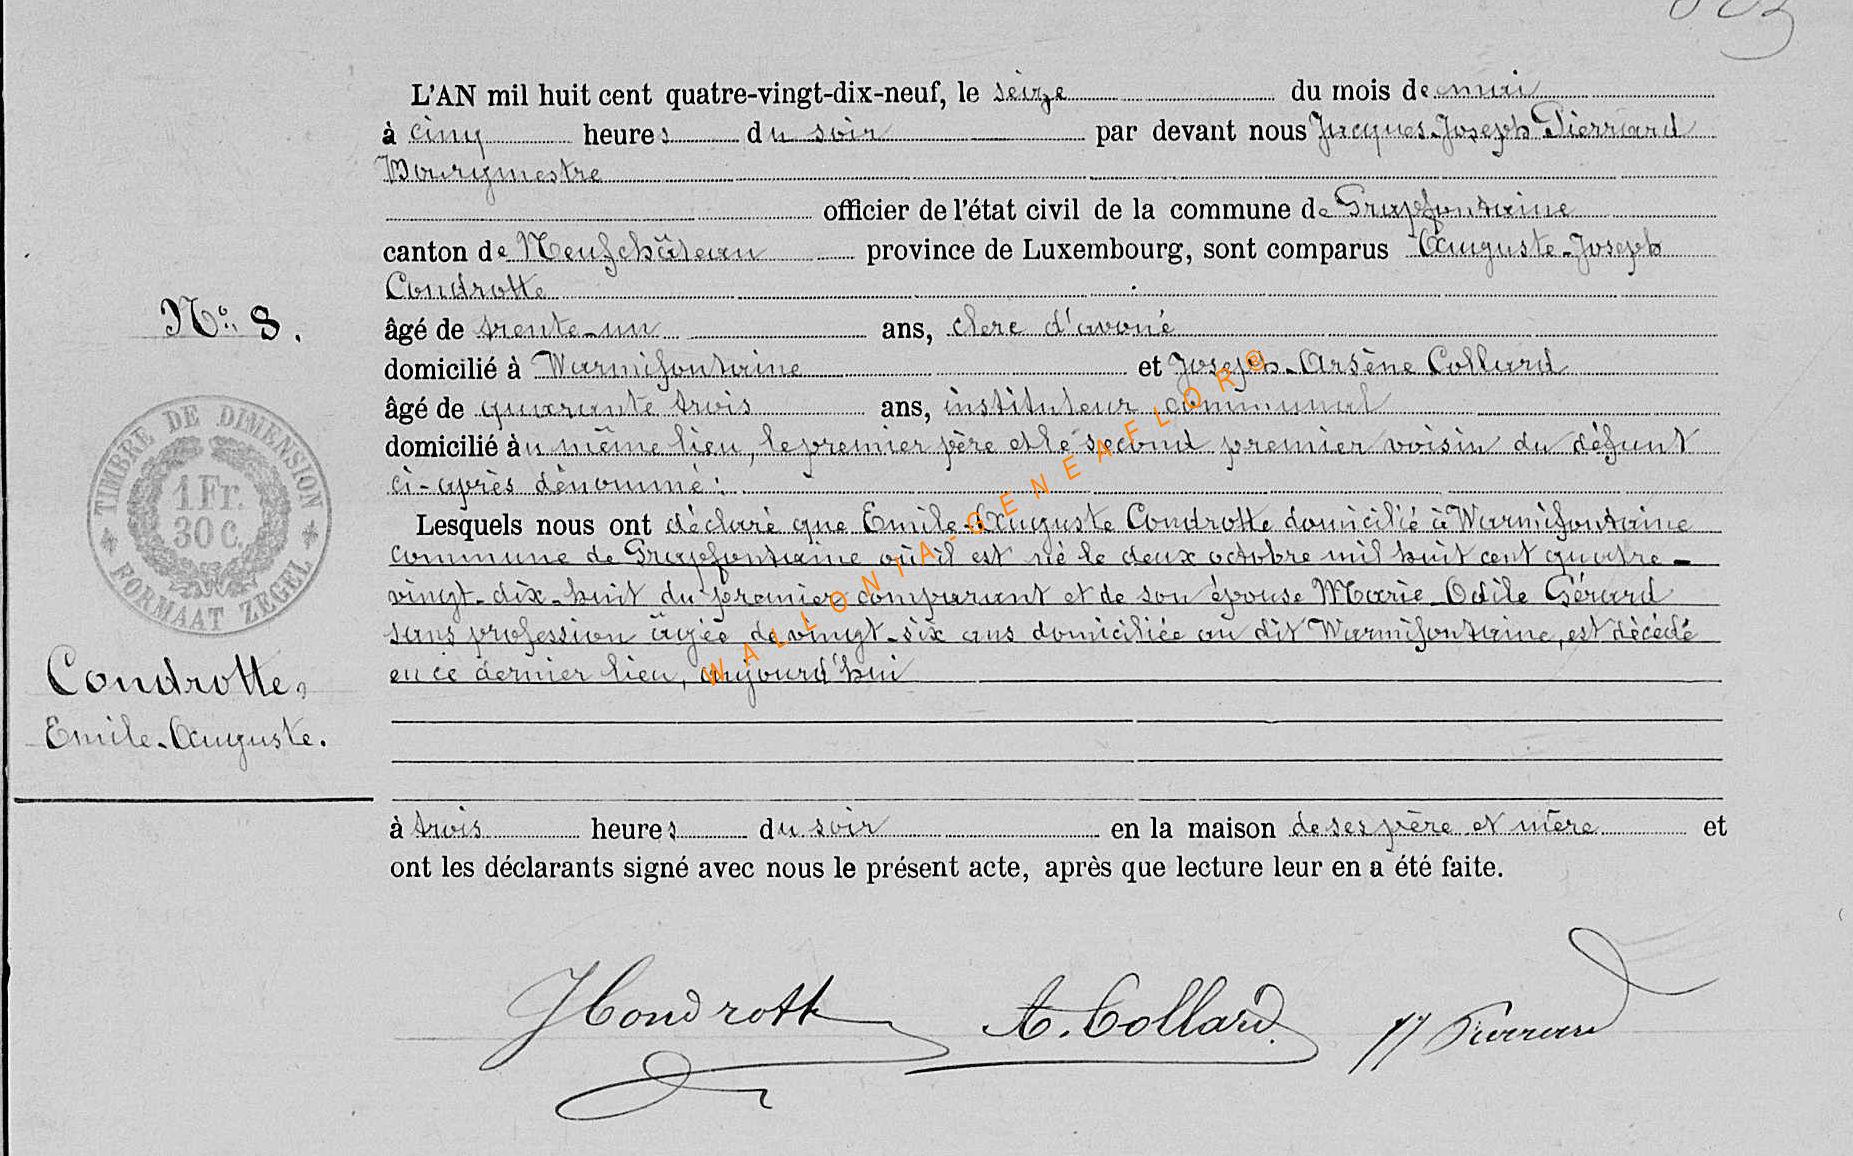 L'AN mil huit cent quatre-vingt-dix-neuf, le seize du mois de mai
à cinq heures du soir par devant nous Jacques-Joseph Pierrard
Bourgmestre
officier de l'état civil de la commune de Grapfontaine
canton de Neufchâteau province de Luxembourg, sont comparus Auguste-Joseph
Condrotte
âgé de trente-un ans, clerc d'avoué
domicilié à Warmifontaine et Joseph-Arsène Collard
âgé de quarante trois ans, instituteur communal
domicilié au même lieu, le premier père et le second premier voisin du défunt
ci-après dénommé :
Lesquels nous ont déclaré que Emile-Auguste Condrotte domicilié à Warmifontaine
commune de Grapfontaine où il est né le deux octobre mil huit cent quatre-
vingt-dix-huit du premier comparant et de son épouse Marie-Odile Gérard
sans profession âgée de vingt-six ans domiciliée au dit Warmifontaine, est décédé
en ce dernier lieu, aujourd'hui
à trois heures du soir en la maison de ses père et mère et
ont les déclarants signé avec nous le présent acte, après que lecture leur en a été faite.
N° 8.
TIMBRE DE DIMENSION
1 Fr.
30 C.
FORMAAT ZEGEL
Condrotte,
Emile-Auguste.
WALLONIA-GENEAFLOR®
Condrotte A. Collard JJ Pierrard